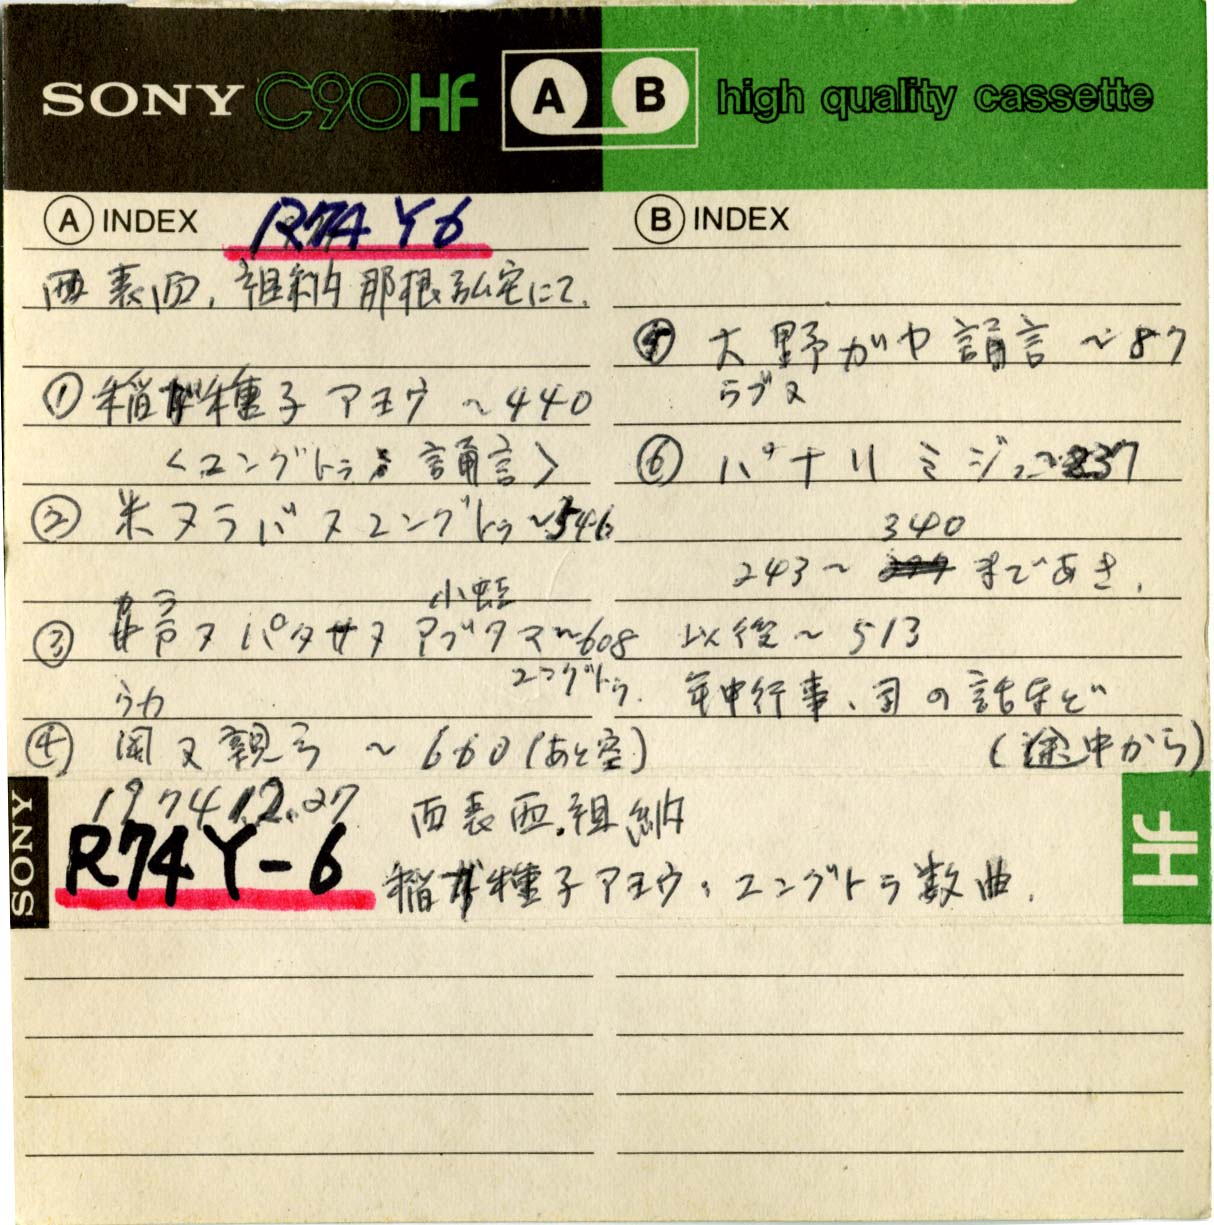 SONY C90HF A B high quality cassette
A INDEX R74 Y6
西表西、祖納 那根弘宅にて、
① 稲が種子 アヨウ ~440
<ユングトゥ 誦言>
② 米ヌラバヌユングトゥ~546
小蛙
③ ヌ パタサヌ アブタマ~608
ユングトゥ
④ 又 親 ~660(あと空)
B INDEX
⑤ 大野がや 誦言 ~87
ラブヌ
⑥ パナリ ミジュ~237
340
243~ まであき、
以後~513
年中行事、司の話など
(途中から)
SONY
1974.12.27
R74Y-6
西表西、祖納
稲が種子アヨウ、ユングトゥ数曲.
HF